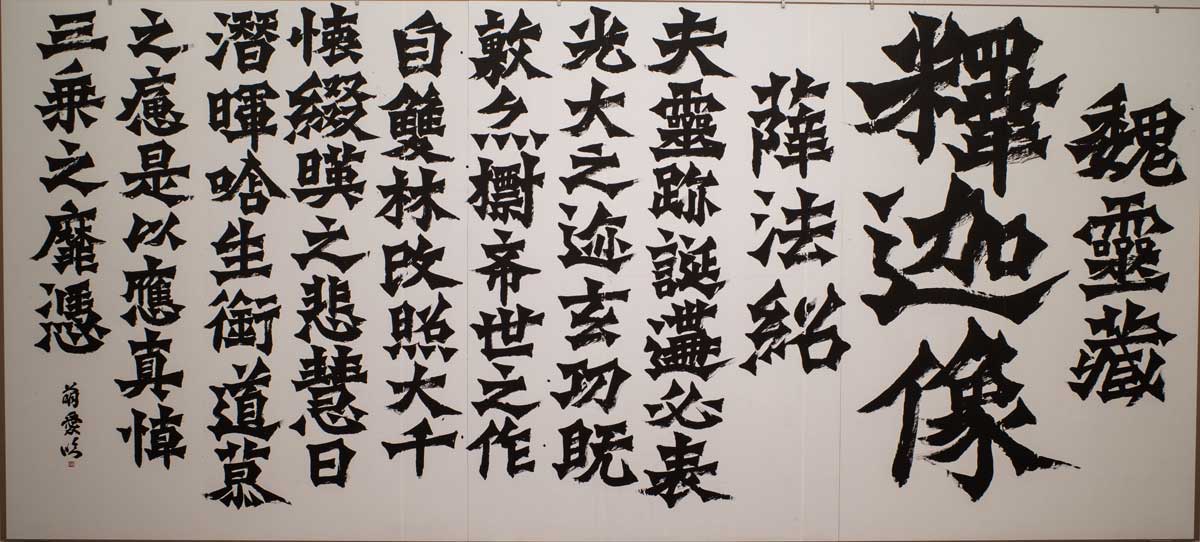 魏靈藏
釋迦像
薛法紹
夫靈跡誕遘必表
光大之迹玄功既
敷亦標希世之作
自雙林改照大千
懐綴暎之悲慧日
潛暉唅生銜道慕
之痛是以應真悼
三乗之靡憑